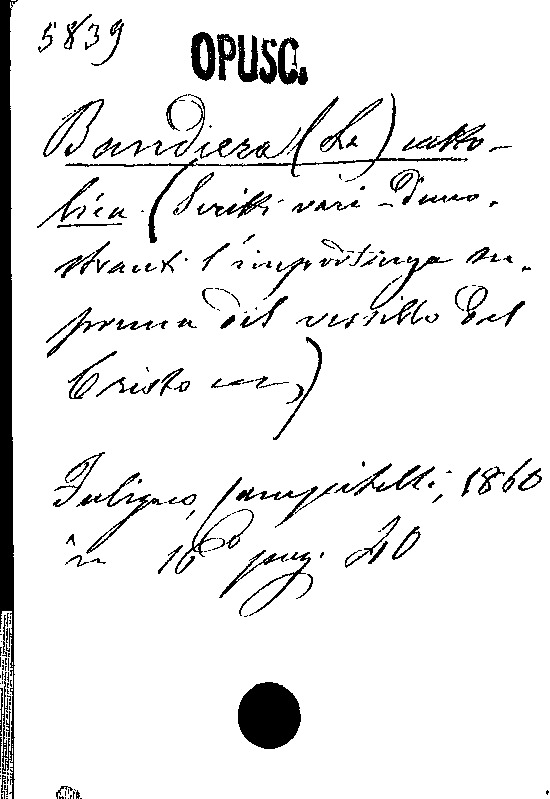 5839
OPUSC.
Bandiera (La) catto-
lica. (Scritti vari dimo-
stranti l'importanza su-
prema del vessillo del
Cristo ecc.)
Foligno, Campitelli, 1860
in 16° pag. 40